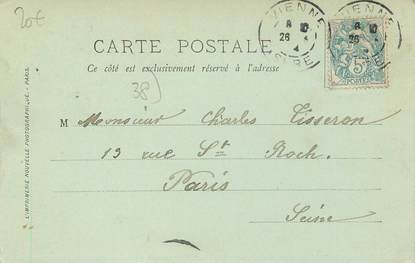 20€
VIENNE
8 10
26 3
4
ISÈRE
CARTE POSTALE
Ce côté est exclusivement réservé à l'adresse
38
5c
POSTES
M Monsieur Charles Tisseron
13 rue St Roch.
Paris
Seine
L'IMPRIMERIE NOUVELLE PHOTOGRAPHIQUE - PARIS.